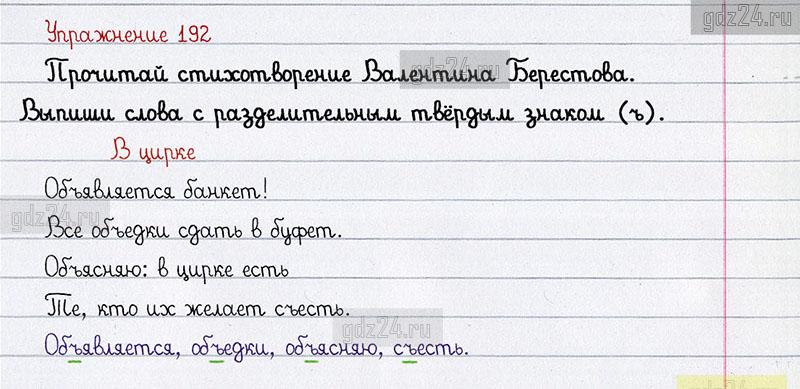 gdz24.ru
Упражнение 192
Прочитай стихотворение Валентина Берестова.
gdz24.ru
Выпиши слова с разделительным твёрдым знаком (ъ).
В цирке
Объявляется банкет!
gdz24.ru
Все объедки сдать в буфет.
Объясняю: в цирке есть
Те, кто их желает съесть.
gdz24.ru
Объявляется, объедки, объясняю, съесть.